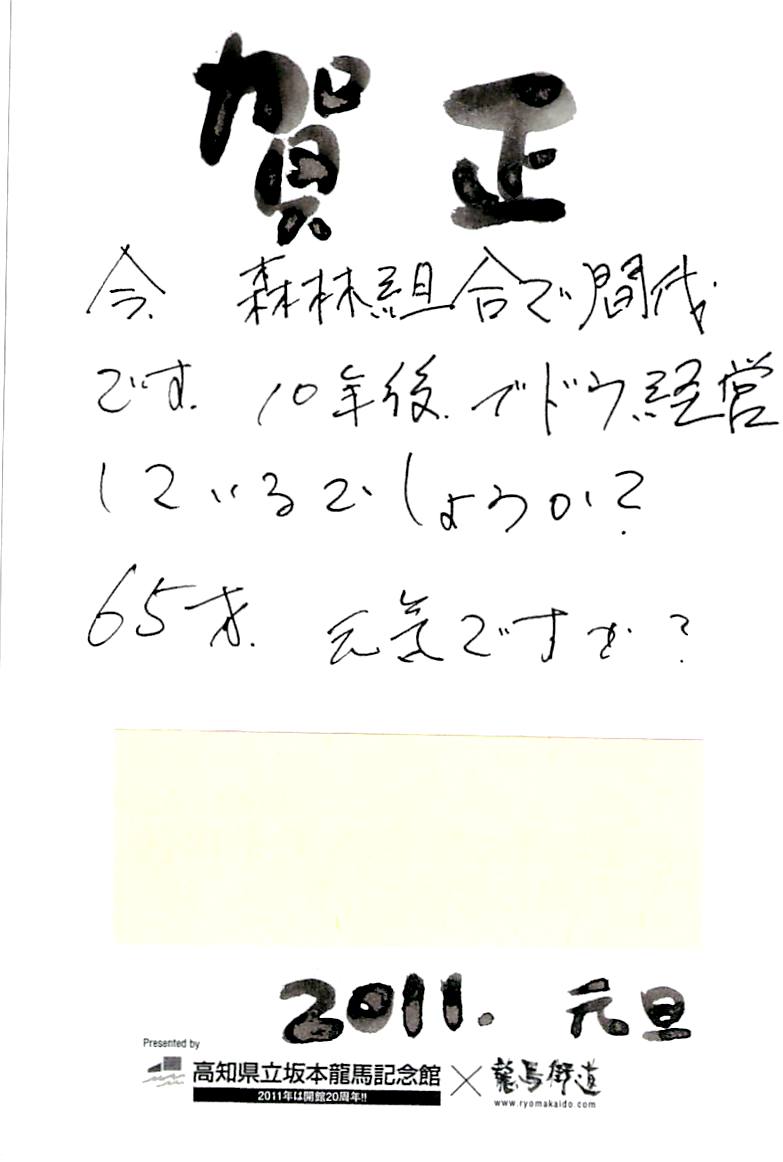 賀正
今 森林組合で間伐
です。10年後。でドウ経営
しているでしょうか?
65才。元気ですか?
2011. 元旦
Presented by
高知県立坂本龍馬記念館×龍馬街道
2011年は開館20周年!!
www.ryomakaido.com